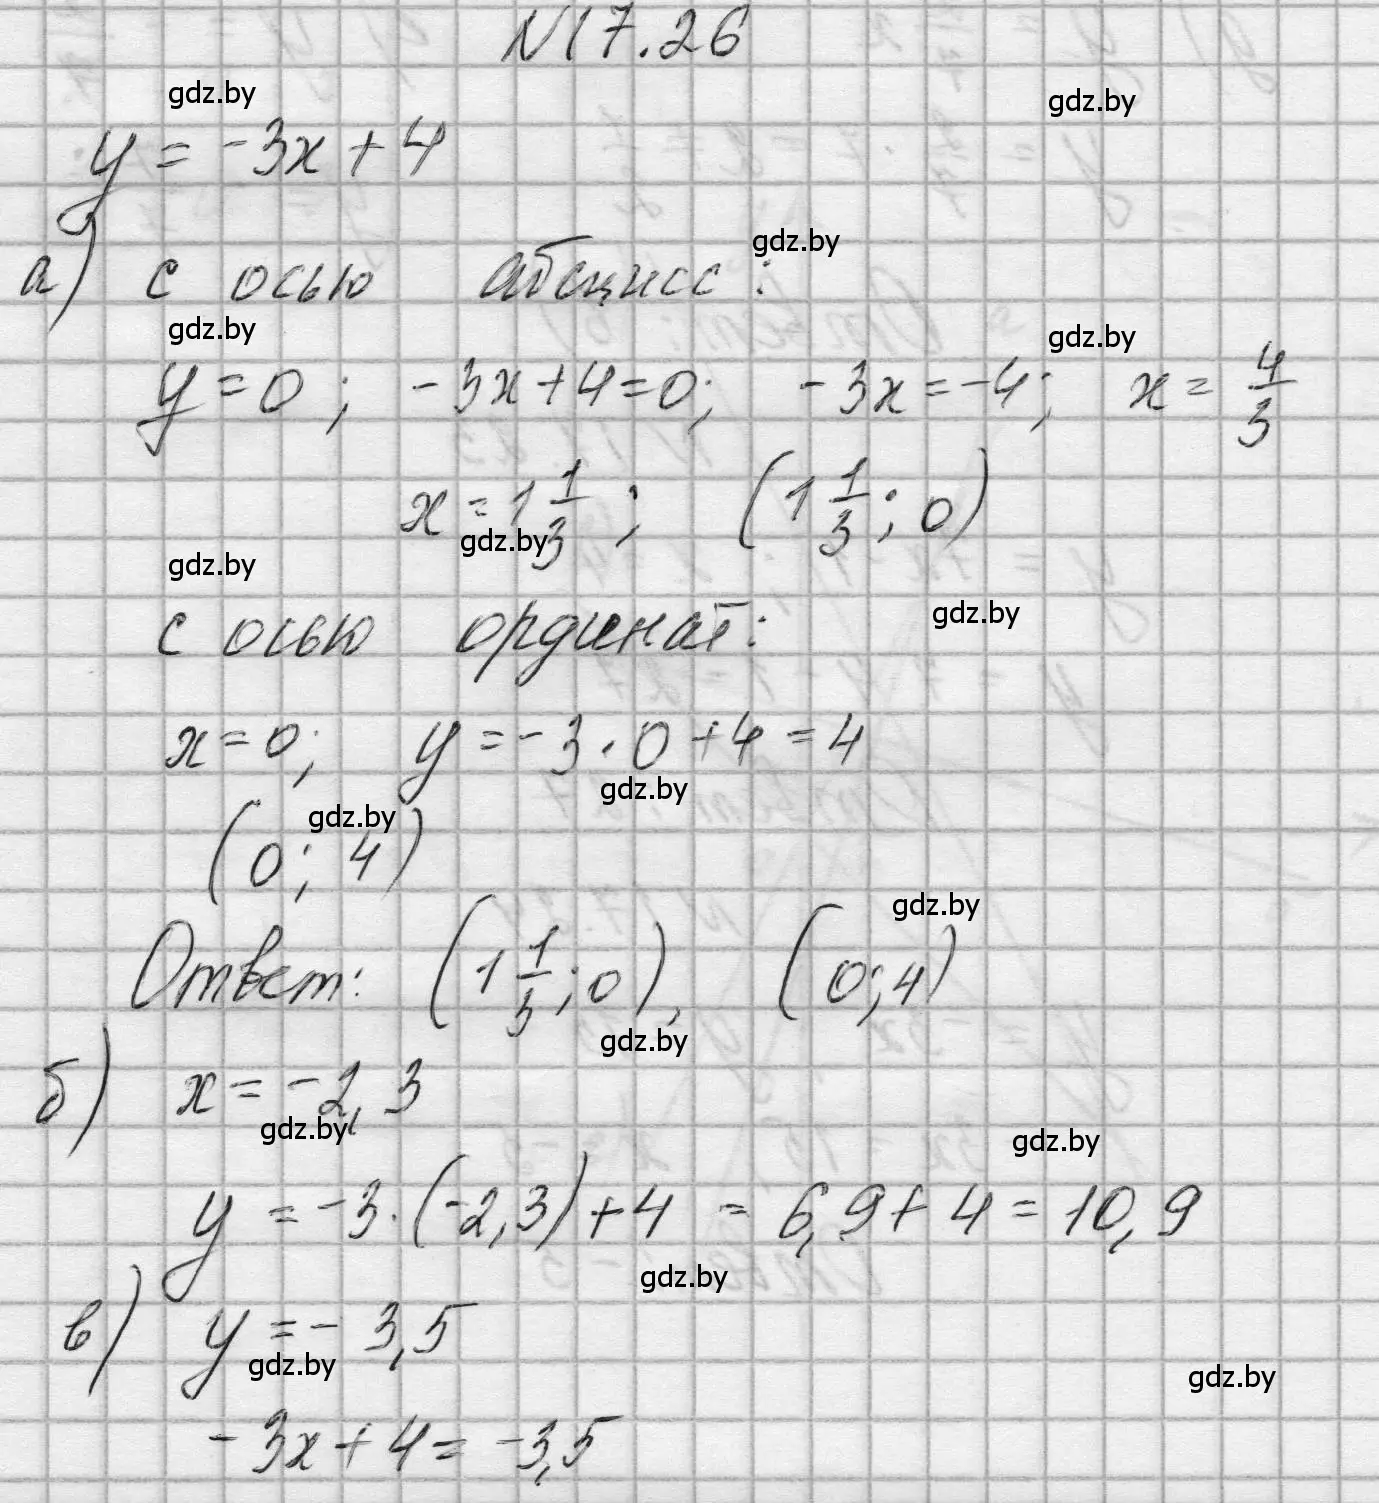 N17.26
gdz.by
gdz.by
y = -3x + 4
gdz.by
а) с осью абсцисс:
gdz.by
gdz.by
y = 0; -3x + 4 = 0; -3x = -4; x = 4/3
x = 1 1/3; (1 1/3; 0)
gdz.by
gdz.by
gdz.by
с осью ординат:
x = 0; y = -3 · 0 + 4 = 4
gdz.by
gdz.by
(0; 4)
gdz.by
Ответ: (1 1/3; 0), (0; 4)
gdz.by
б) x = -2,3
gdz.by
gdz.by
y = -3 · (-2,3) + 4 = 6,9 + 4 = 10,9
gdz.by
в) y = -3,5
gdz.by
gdz.by
-3x + 4 = -3,5